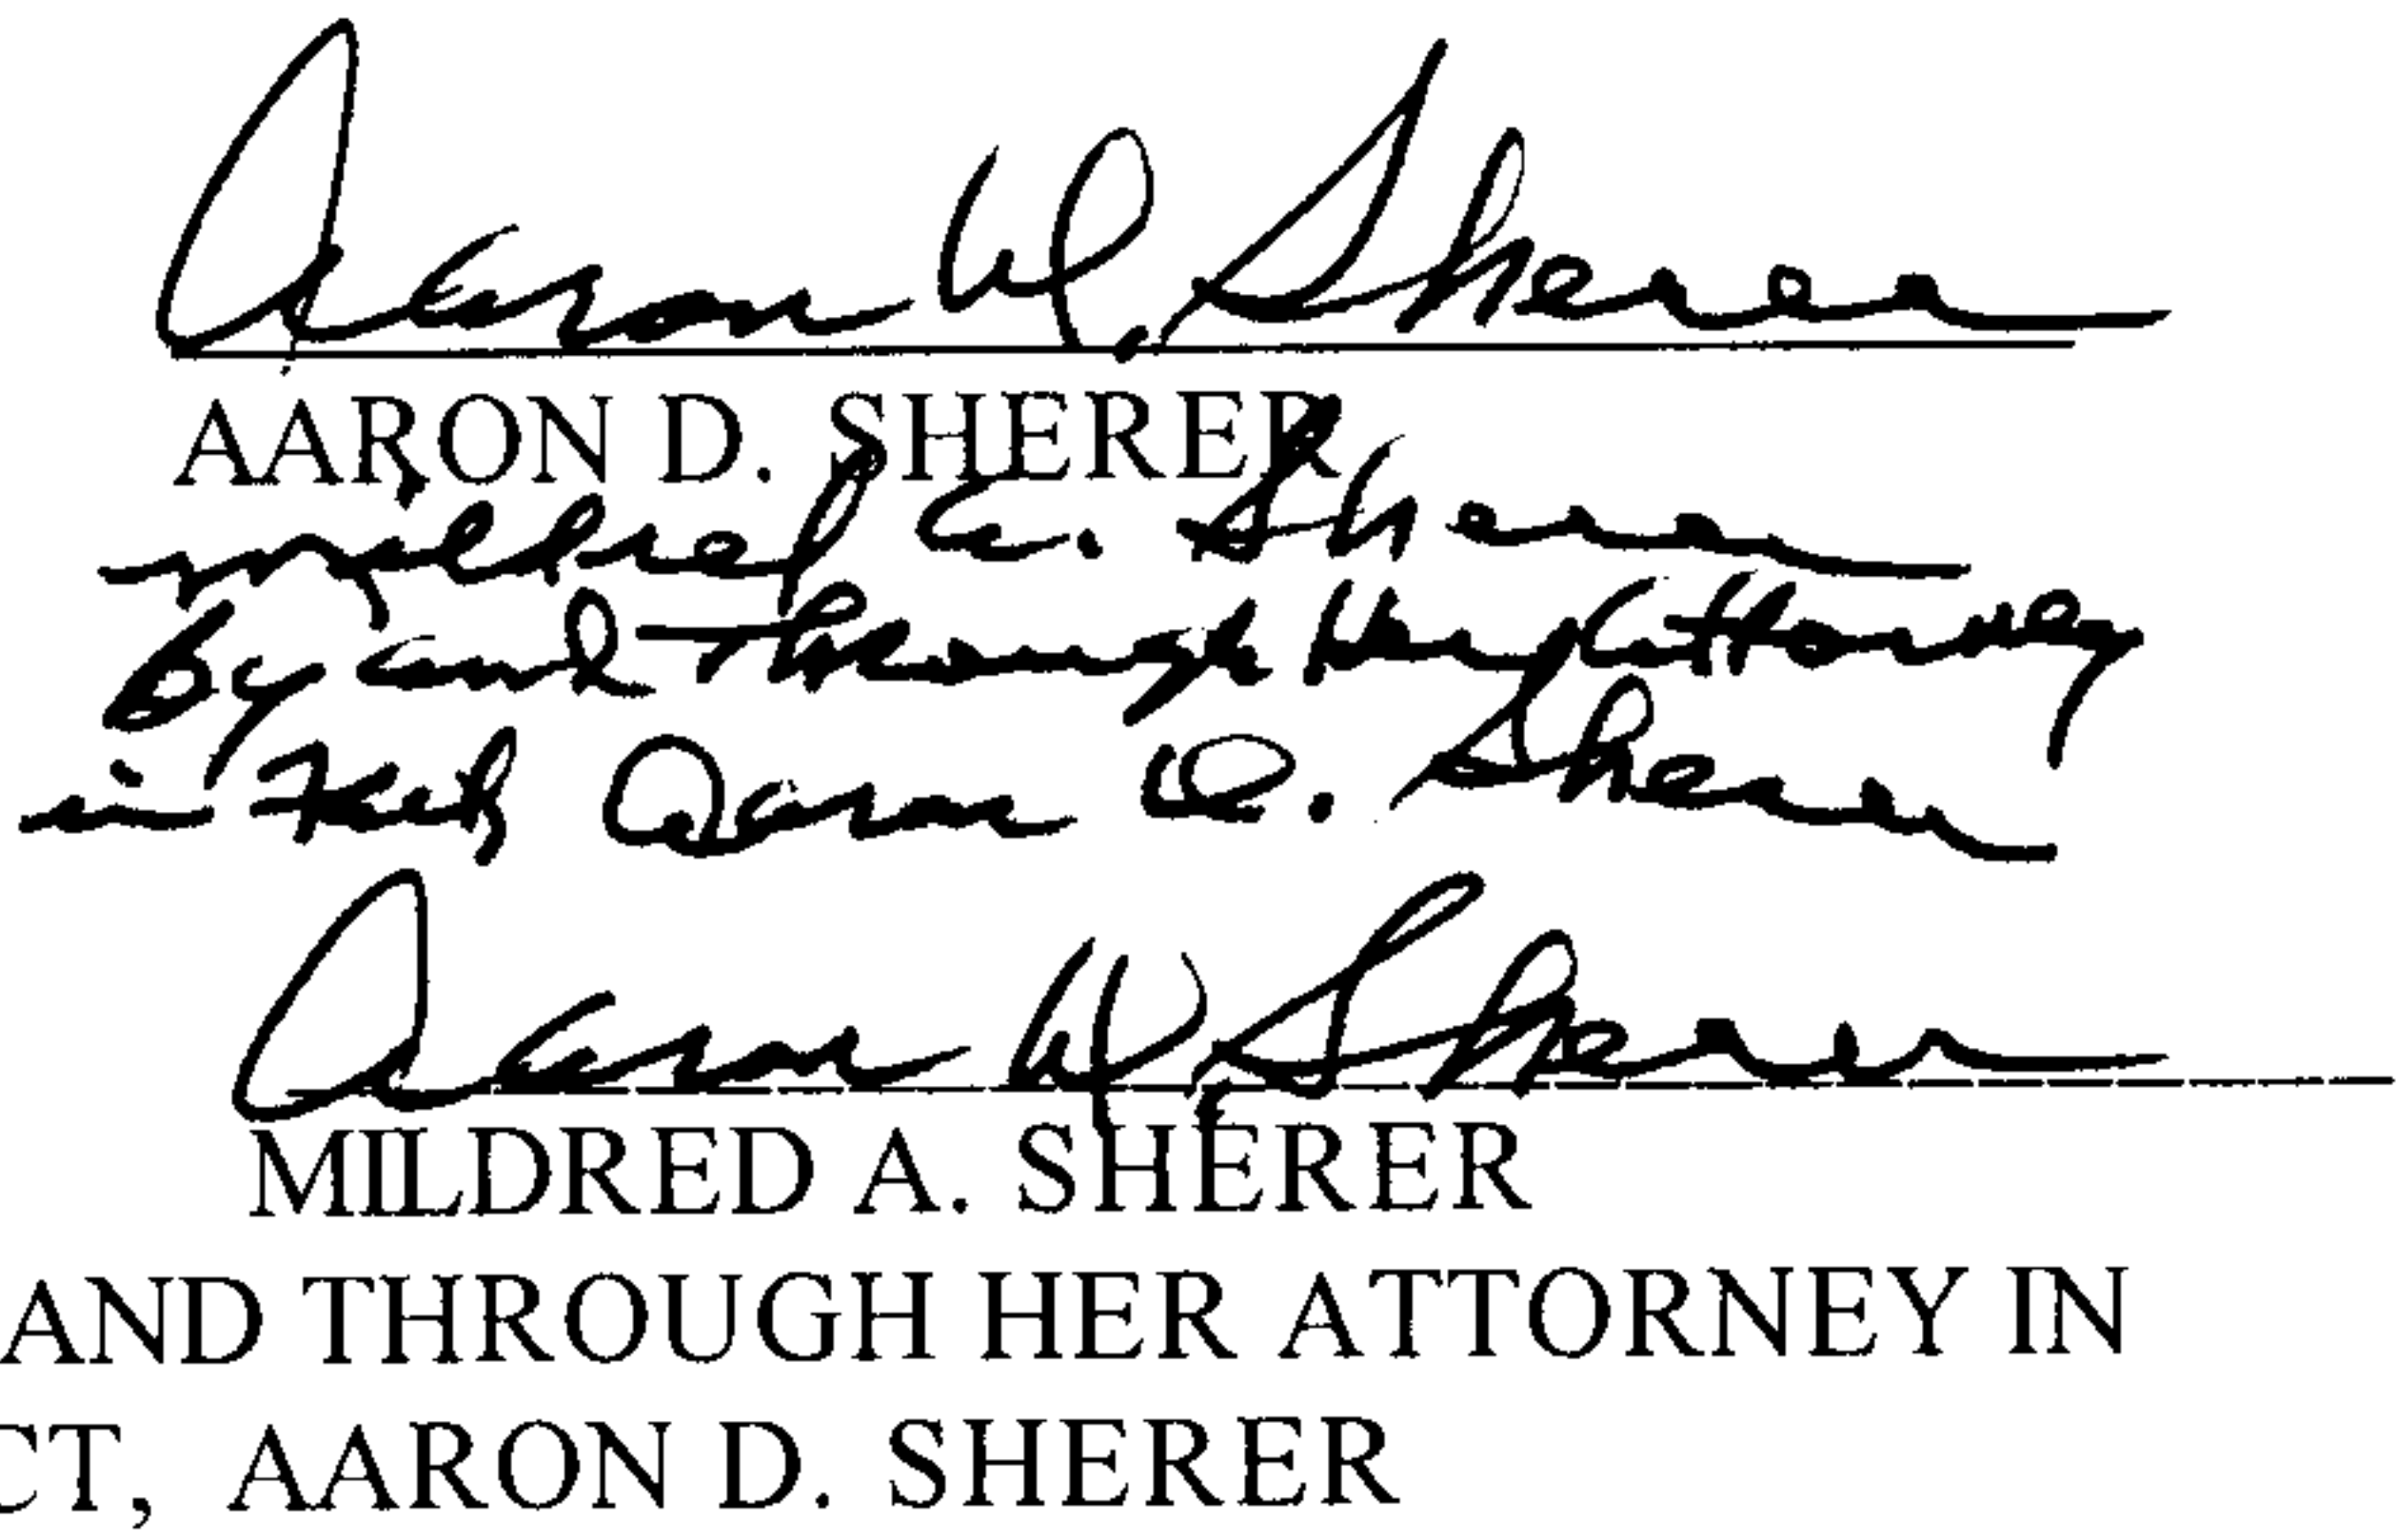 Aaron D. Sherer
AARON D. SHERER
Mildred A. Sherer
by and through her attorney
in fact Aaron D. Sherer
Aaron D. Sherer
MILDRED A. SHERER
AND THROUGH HER ATTORNEY IN
CT, AARON D. SHERER